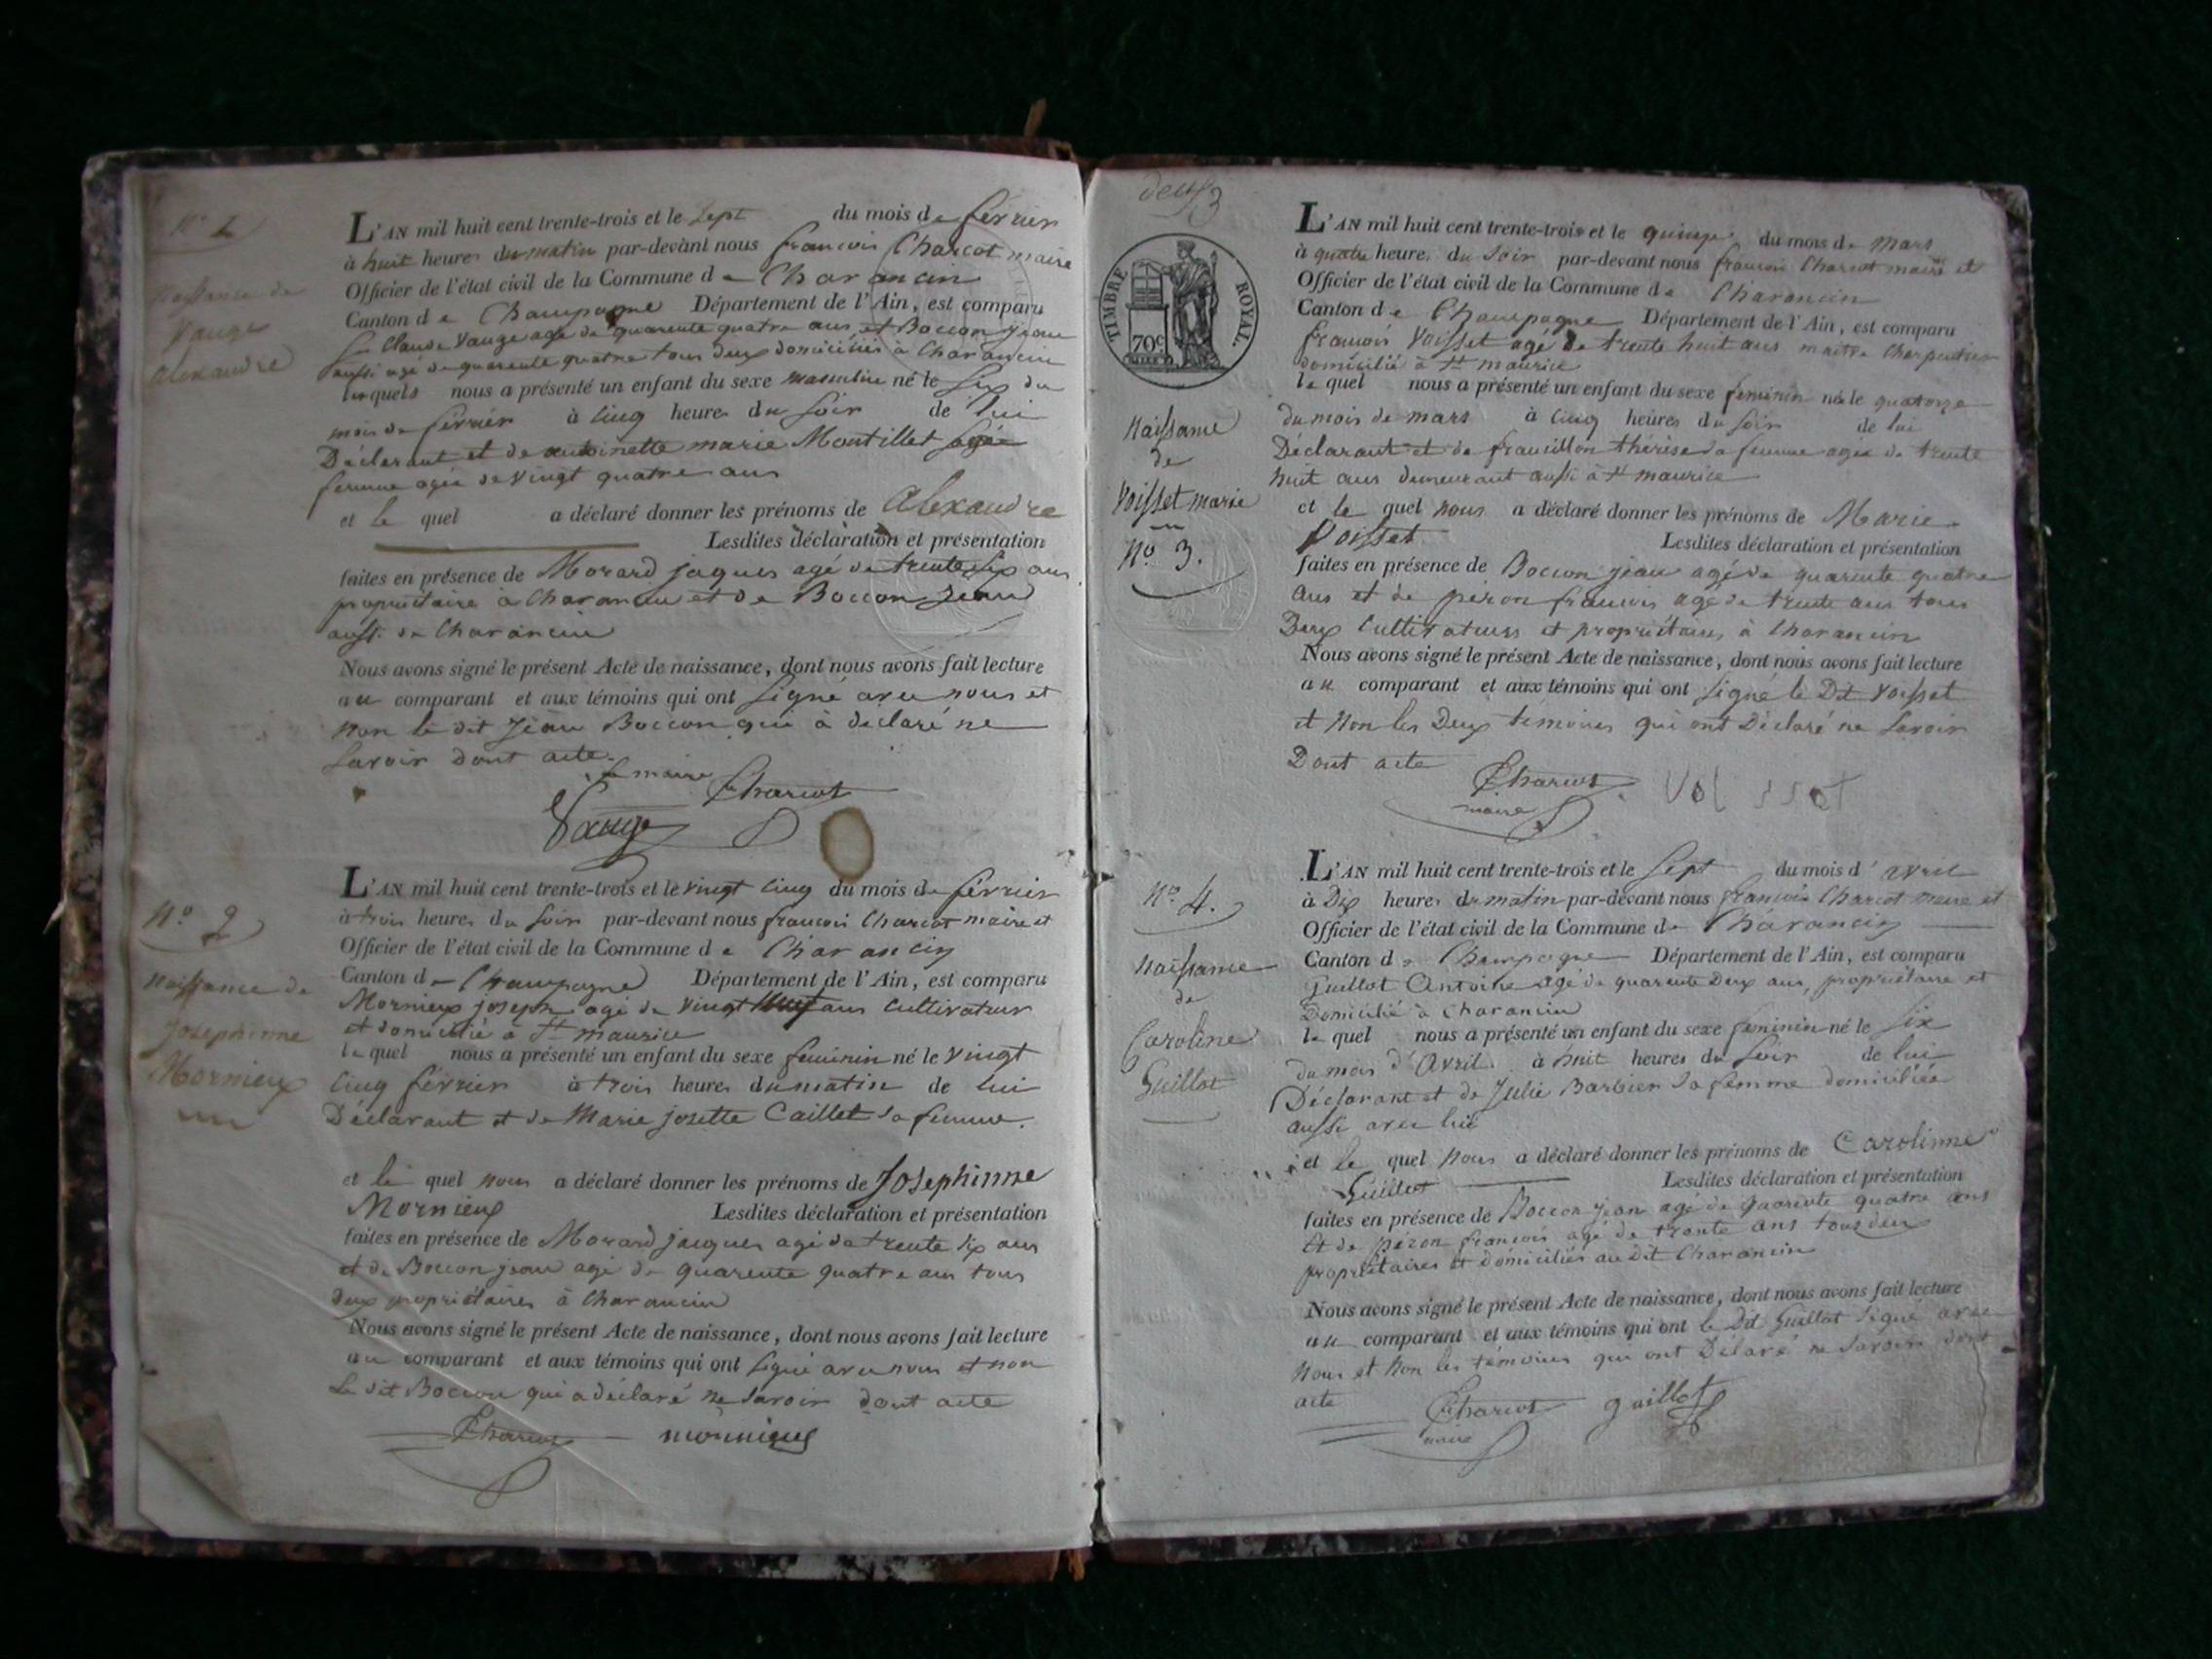 Naissance de
Vauge
Alexandre
L'AN mil huit cent trente-trois et le sept du mois de février
à huit heures du matin par-devant nous françois Charcot maire
Officier de l'état civil de la Commune de Charancin
Canton de Champagne Département de l'Ain, est comparu
Claude Vauge agé de quarente quatre ans et Boccon jean
aussi agé de quarente quatre tous deux domiciliés à Charancin
lesquels nous a présenté un enfant du sexe masculin né le six du
mois de février à cinq heures du soir de lui
Déclarant et de antoinette marie Montillet
femme agée de vingt quatre ans
et le quel a déclaré donner les prénoms de Alexandre
Lesdites déclaration et présentation
faites en présence de Morard jaques agé de trente six ans
propriétaire à Charancin et de Boccon Jean
aussi de Charancin
Nous avons signé le présent Acte de naissance, dont nous avons fait lecture
au comparant et aux témoins qui ont signé avec nous et
non le dit Jean Boccon qui à declaré ne
savoir dont acte.
le maire Charcot
Vauge
N° 2
Naissance de
Josephinne
Mornieux
L'AN mil huit cent trente-trois et le vingt cinq du mois de février
à trois heures du soir par-devant nous francois Charcot maire et
Officier de l'état civil de la Commune de Charancin
Canton de Champagne Département de l'Ain, est comparu
Mornieux joseph agé de vingt ans cultivateur
et domicilié à St maurice
lequel nous a présenté un enfant du sexe feminin né le vingt
cinq février à trois heures du matin de lui
Déclarant et de Marie josette Caillet sa femme.
et le quel nous a déclaré donner les prénoms de Josephinne
Mornieux Lesdites déclaration et présentation
faites en présence de Morard jacques agé de trente six ans
et de Boccon jean agé de quarente quatre ans tous
deux propriétaires à Charancin
Nous avons signé le présent Acte de naissance, dont nous avons fait lecture
au comparant et aux témoins qui ont signé avec nous et non
Le dit Boccon qui a déclaré ne savoir dont acte
Charcot mornieux
deux
TIMBRE ROYAL.
70c
Naissance
de
Voisset marie
N° 3.
L'AN mil huit cent trente-trois et le quinze du mois de mars
à quatre heures du soir par-devant nous francois Charcot maire et
Officier de l'état civil de la Commune de Charancin
Canton de Champagne Département de l'Ain, est comparu
francois Voisset agé de trente huit ans maitre charpentier
domicilié à St maurice
lequel nous a présenté un enfant du sexe feminin né le quatorze
du mois de mars à cinq heures du soir de lui
Déclarant et de francillon thérèse sa femme agée de trente
huit ans demeurant aussi à St maurice
et le quel nous a déclaré donner les prénoms de Marie
Voisset Lesdites déclaration et présentation
faites en présence de Boccon jean agé de quarente quatre
ans et de péron francois agé de trente ans tous
Deux cultivateurs et propriétaires à Charancin
Nous avons signé le présent Acte de naissance, dont nous avons fait lecture
au comparant et aux témoins qui ont signé le Dit Voisset
et Non les Deux témoins qui ont Déclaré ne savoir
Dont acte
Charcot
maire
N° 4.
Naissance
de
Caroline
Guillot
L'AN mil huit cent trente-trois et le sept du mois d'avril
à Dix heures du matin par-devant nous françois Charcot maire et
Officier de l'état civil de la Commune de Charancin
Canton de Champagne Département de l'Ain, est comparu
Guillot Antoine agé de quarente Deux ans, propriétaire et
Domicilié à Charancin
lequel nous a présenté un enfant du sexe feminin né le six
du mois d'Avril à huit heures du soir de lui
Déclarant et de Julie Barbier sa femme domiciliée
aussi avec lui
et le quel nous a déclaré donner les prénoms de Carolinne
Guillot Lesdites déclaration et présentation
faites en présence de Boccon jean agé de quarente quatre ans
et de péron francois agé de trente ans tous deux
propriétaires et domiciliés au dit Charancin
Nous avons signé le présent Acte de naissance, dont nous avons fait lecture
au comparant et aux témoins qui ont le Dit Guillot signé avec
nous et non les témoins qui ont Déclaré ne savoir dont
acte
Charcot guillot
maire